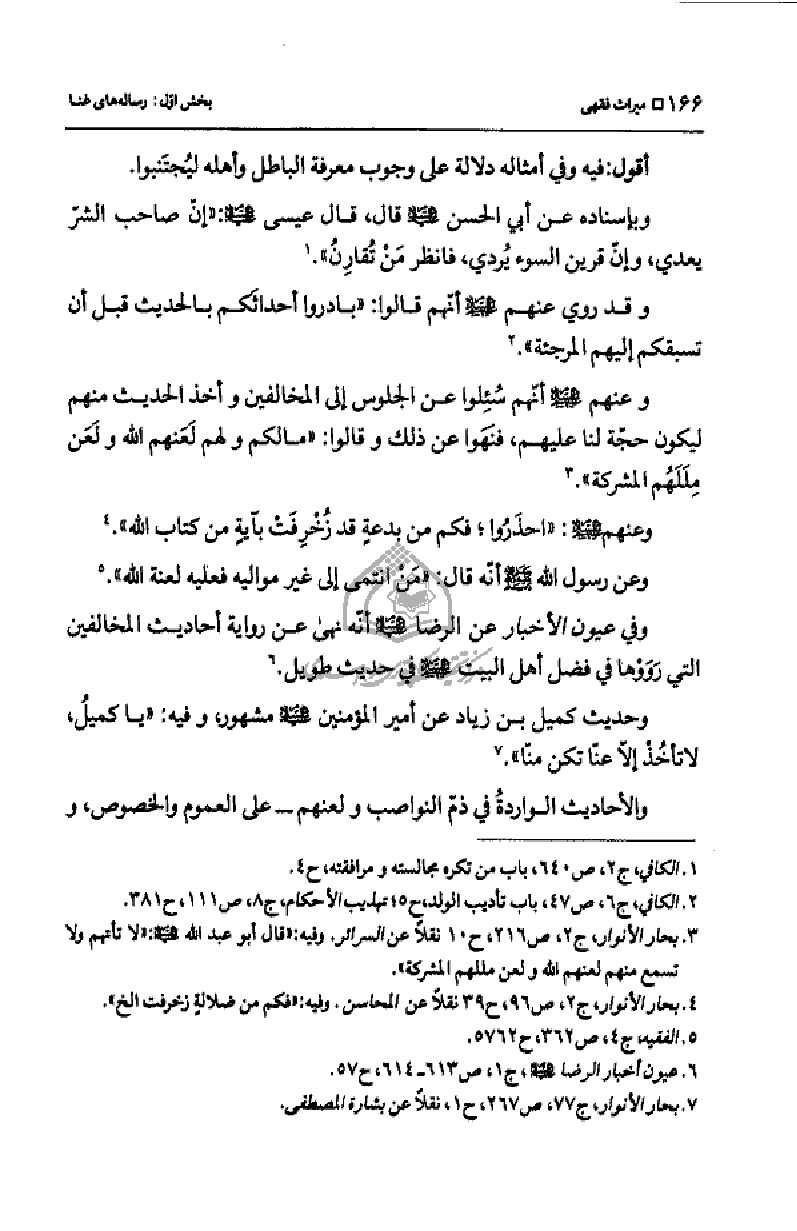 ۱۶۶ □ میراث فقهی
بخش اوّل: رساله‌های غنا
أقول: فيه وفي أمثاله دلالة على وجوب معرفة الباطل وأهله ليُجتَنبوا.
وبإسناده عن أبي الحسن ﷷ قال، قال عيسى ﷷ: «إنّ صاحب الشرّ
يعدي، وإنّ قرين السوء يُردي، فانظر مَنْ تُقارِنُ».١
و قد روي عنهم ﷷ أنّهم قالوا: «بادروا أحداثَكم بالحديث قبل أن
تسبقكم إليهم المرجئة».٢
و عنهم ﷷ أنّهم سُئِلوا عن الجلوس إلى المخالفين و أخذ الحديث منهم
ليكون حجّة لنا عليهم، فنَهَوا عن ذلك و قالوا: «مالكم و لهم لَعَنهم الله و لَعَن
مِلَلَهُم المشركة».٣
وعنهم ﷷ: «احذَرُوا؛ فكم من بدعةٍ قد زُخْرِفَتْ بآيةٍ من كتاب الله».٤
وعن رسول الله ﷺ أنّه قال: «مَنْ انتمى إلى غير مواليه فعليه لعنة الله».٥
وفي عيون الأخبار عن الرضا ﷷ أنّه نهىٰ عن رواية أحاديث المخالفين
التي رَوَوْها في فضل أهل البيت ﷷ في حديث طويل.٦
وحديث كميل بن زياد عن أمير المؤمنين ﷷ مشهور، و فيه: «يا كميلُ،
لاتأخُذْ إلاّ عنّا تكن منّا».٧
والأحاديث الواردةُ في ذمّ النواصب و لعنهم ـ على العموم والخصوص، و
١. الكافي، ج٢، ص٦٤٠، باب من تكره مجالسته و مرافقته، ح٤.
٢. الكافي، ج٦، ص٤٧، باب تأديب الولد، ح٥؛ تهذيب الأحكام، ج٨، ص١١١، ح٣٨١.
٣. بحار الأنوار، ج٢، ص٢١٦، ح١٠ نقلاً عن السرائر. وفيه: «قال أبو عبد الله ﷷ: «لا تأتهم ولا
تسمع منهم لعنهم الله و لعن مللهم المشركة».
٤. بحار الأنوار، ج٢، ص٩٦، ح٣٩ نقلاً عن المحاسن. وفيه: «فكم من ضلالةٍ زخرفت الخ».
٥. الفقيه، ج٤، ص٣٦٢، ح٥٧٦٢.
٦. عيون أخبار الرضا ﷷ، ج١، ص٦١٣ـ٦١٤، ح٥٧.
٧. بحار الأنوار، ج٧٧، ص٢٦٧، ح١، نقلاً عن بشارة المصطفى.